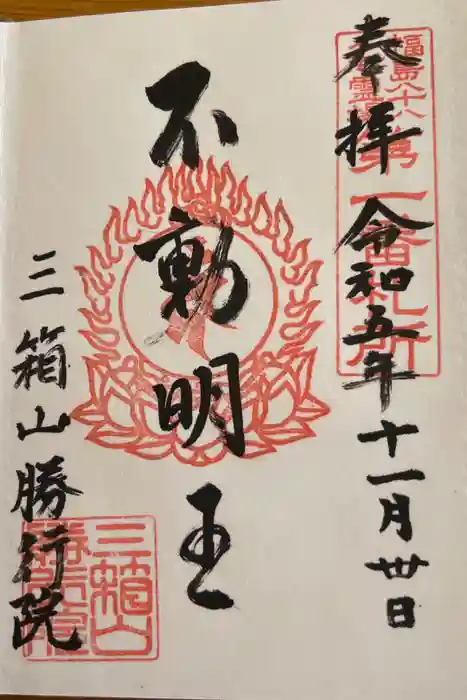 奉拝 令和五年十一月卅日
福島八十八
霊
第一番札所
不動明王
三箱山勝行院
三箱山
勝行院